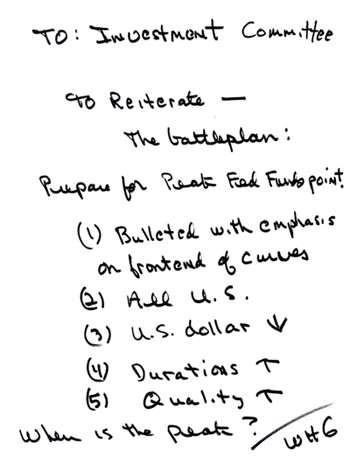 TO: Investment Committee
To Reiterate —
The battleplan:
Prepare for Peak Fed Funds point!
(1) Bulleted with emphasis
on frontend of curves
(2) All U.S.
(3) U.S. dollar ↓
(4) Durations ↑
(5) Quality ↑
When is the peak?
WHG